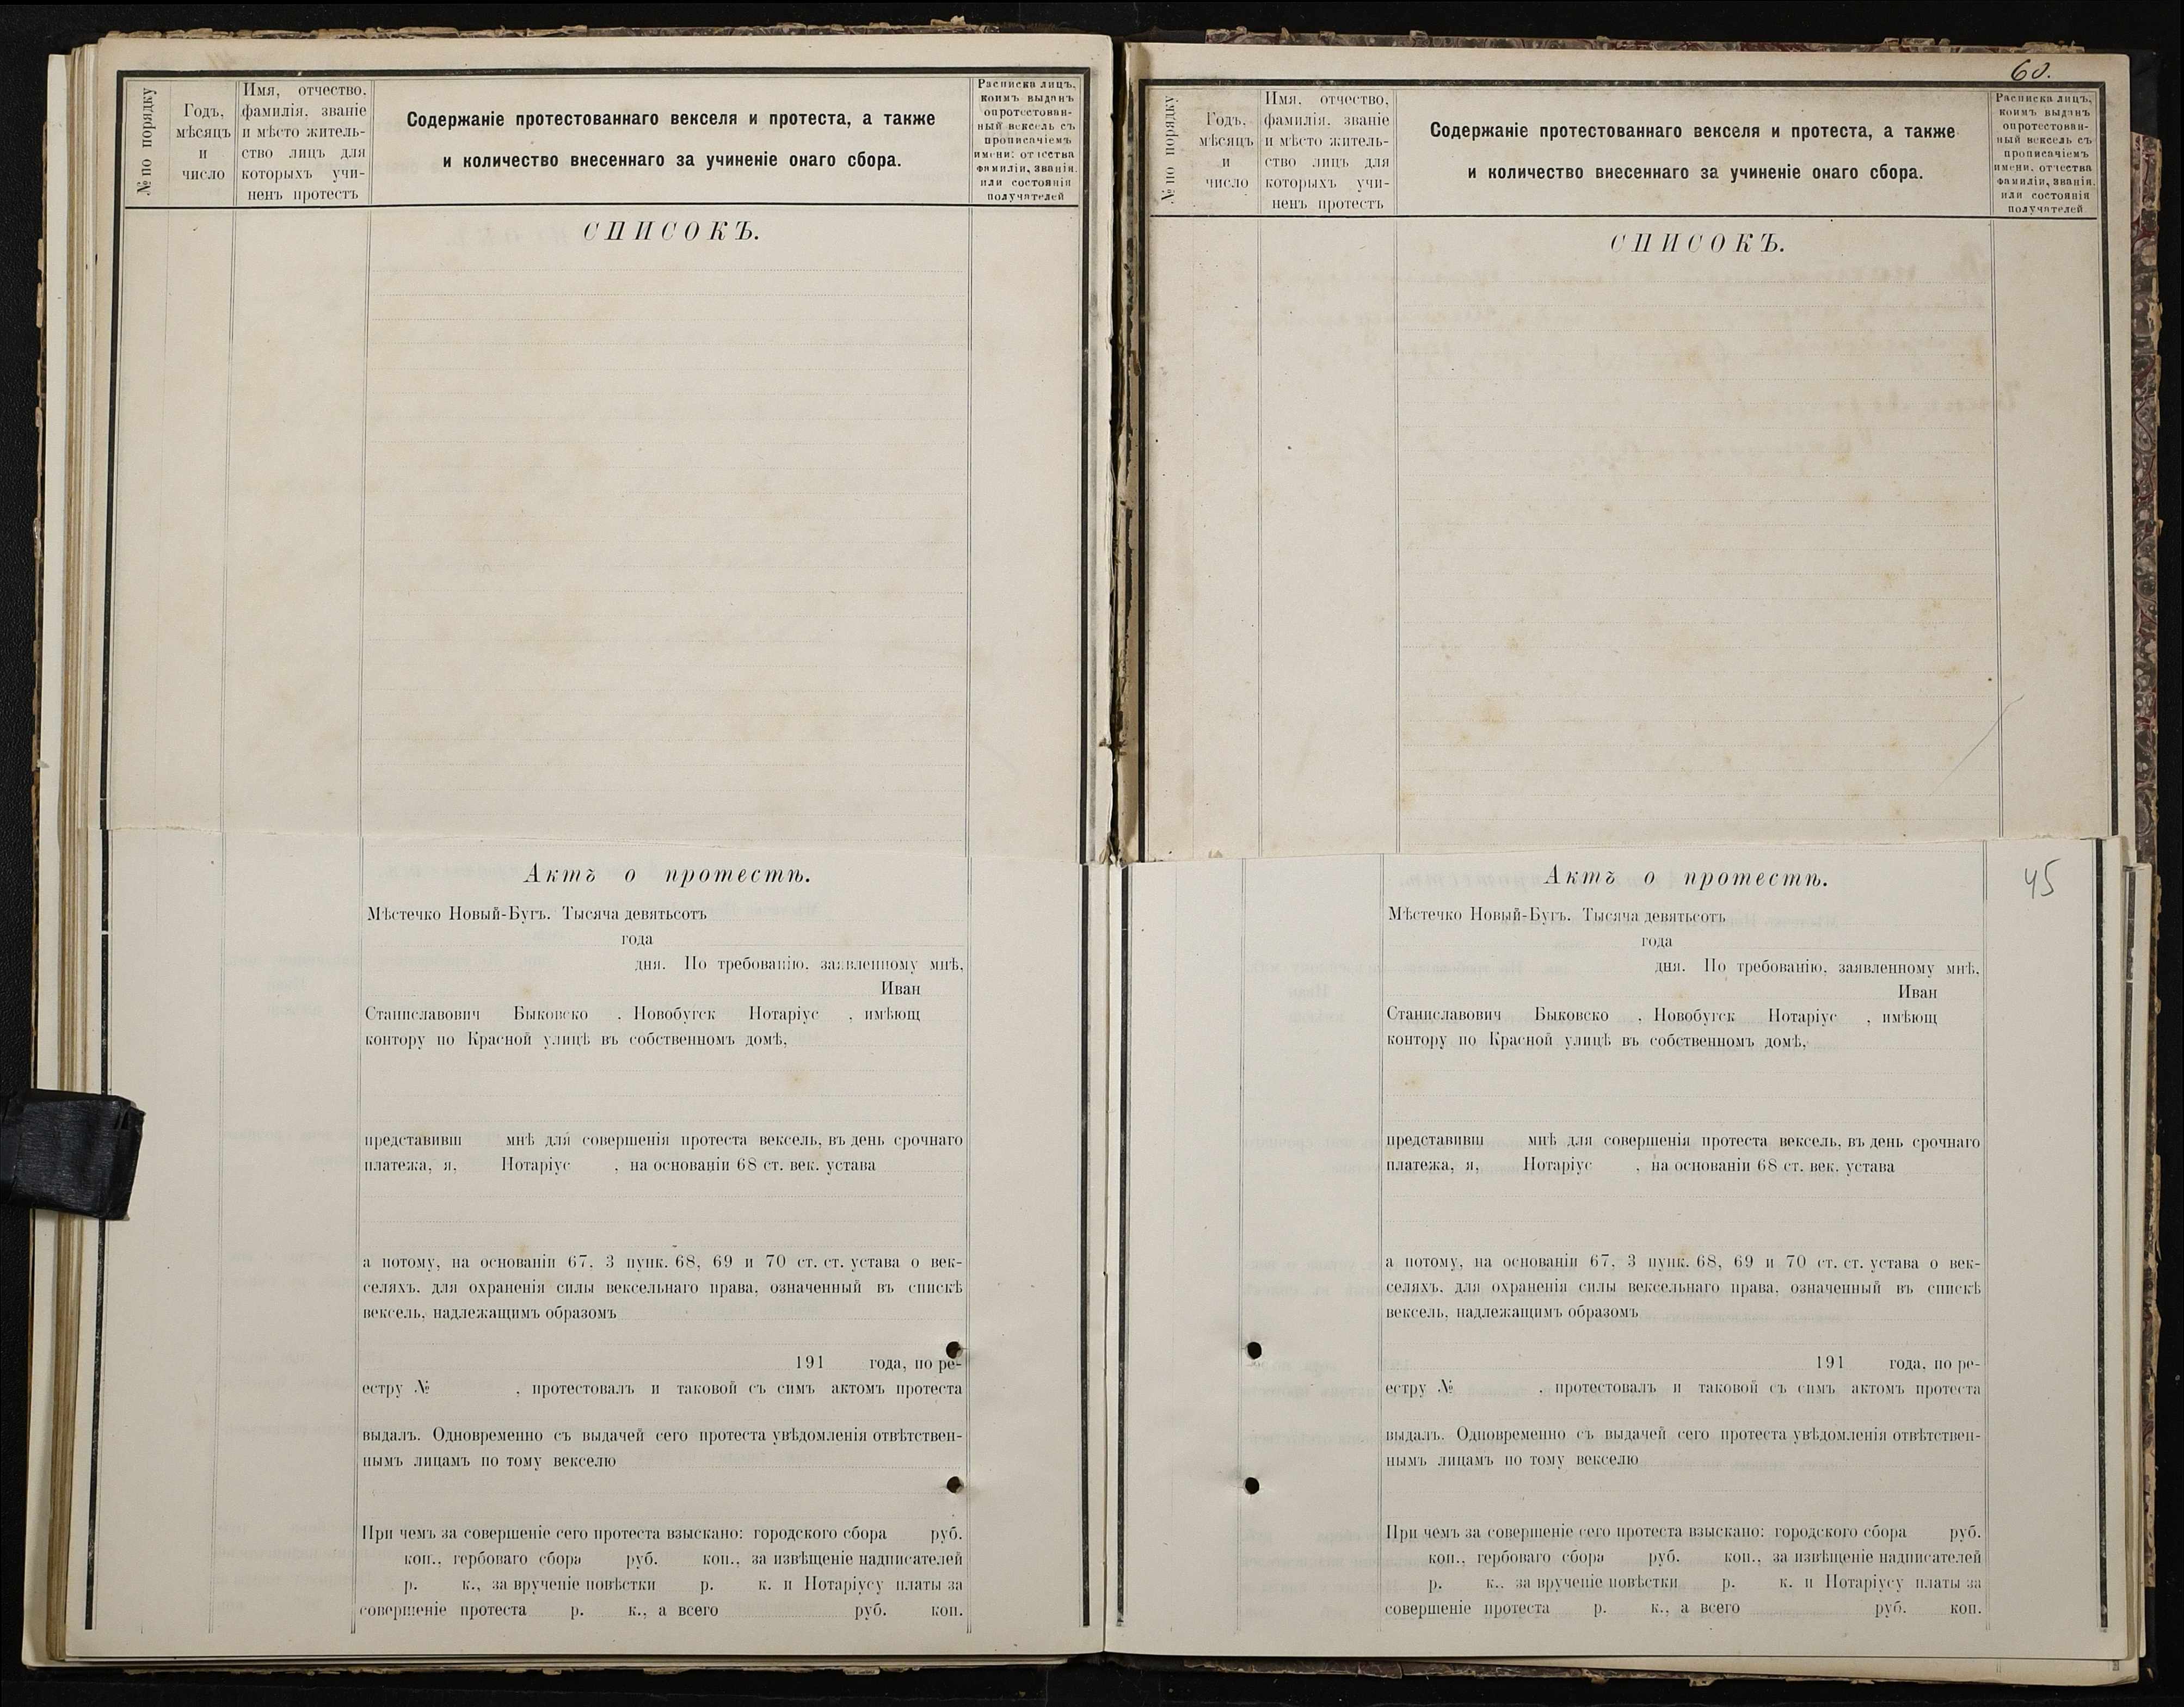 № по порядку
Годъ,
мѣсяцъ
и
число
Имя, отчество.
фамилія. званіе
и мѣсто житель-
ство лицъ для
которыхъ учи-
ненъ протестъ
Содержаніе протестованнаго векселя и протеста, а также
и количество внесеннаго за учиненіе онаго сбора.
Расписка лицъ,
коимъ выданъ
опротестован-
ный вексель съ
прописаніемъ
имени: отчества
фамиліи, званія.
или состоянія
получателей
СПИСОКЪ.
Актъ о протестѣ.
Мѣстечко Новый-Бугъ. Тысяча девятьсотъ
года
дня. По требованію, заявленному мнѣ,
Иван
Станиславович Быковско , Новобугск Нотаріус , имѣющ
контору по Красной улицѣ въ собственномъ домѣ,
представивш мнѣ для совершенія протеста вексель, въ день срочнаго
платежа, я, Нотаріус , на основаніи 68 ст. век. устава
а потому, на основаніи 67, 3 пунк. 68, 69 и 70 ст. ст. устава о век-
селяхъ, для охраненія силы вексельнаго права, означенный въ спискѣ
вексель, надлежащимъ образомъ
191 года, по ре-
естру № , протестовалъ и таковой съ симъ актомъ протеста
выдалъ. Одновременно съ выдачей сего протеста увѣдомленія отвѣтствен-
нымъ лицамъ по тому векселю
При чемъ за совершеніе сего протеста взыскано: городского сбора руб.
коп., гербоваго сбора руб. коп., за извѣщеніе надписателей
р. к., за врученіе повѣстки р. к. и Нотаріусу платы за
совершеніе протеста р. к., а всего руб. коп.
60.
№ по порядку
Годъ,
мѣсяцъ
и
число
Имя. отчество,
фамилія. званіе
и мѣсто житель-
ство лицъ для
которыхъ учи-
ненъ протестъ
Содержаніе протестованнаго векселя и протеста, а также
и количество внесеннаго за учиненіе онаго сбора.
Расписка лицъ,
коимъ выданъ
опротестован-
ный вексель съ
прописаніемъ
имени, отчества
фамиліи, званія.
или состоянія
получателей
СПИСОКЪ.
45
Актъ о протестѣ.
Мѣстечко Новый-Бугъ. Тысяча девятьсотъ
года
дня. По требованію, заявленному мнѣ,
Иван
Станиславович Быковско , Новобугск Нотаріус , имѣющ
контору по Красной улицѣ въ собственномъ домѣ,
представивш мнѣ для совершенія протеста вексель, въ день срочнаго
платежа, я, Нотаріус , на основаніи 68 ст. век. устава
а потому, на основаніи 67, 3 пунк. 68, 69 и 70 ст. ст. устава о век-
селяхъ, для охраненія силы вексельнаго права, означенный въ спискѣ
вексель, надлежащимъ образомъ
191 года, по ре-
естру № , протестовалъ и таковой съ симъ актомъ протеста
выдалъ. Одновременно съ выдачей сего протеста увѣдомленія отвѣтствен-
нымъ лицамъ по тому векселю
При чемъ за совершеніе сего протеста взыскано: городского сбора руб.
коп., гербоваго сбора руб. коп., за извѣщеніе надписателей
р. к., за врученіе повѣстки р. к. и Нотаріусу платы за
совершеніе протеста р. к., а всего руб. коп.